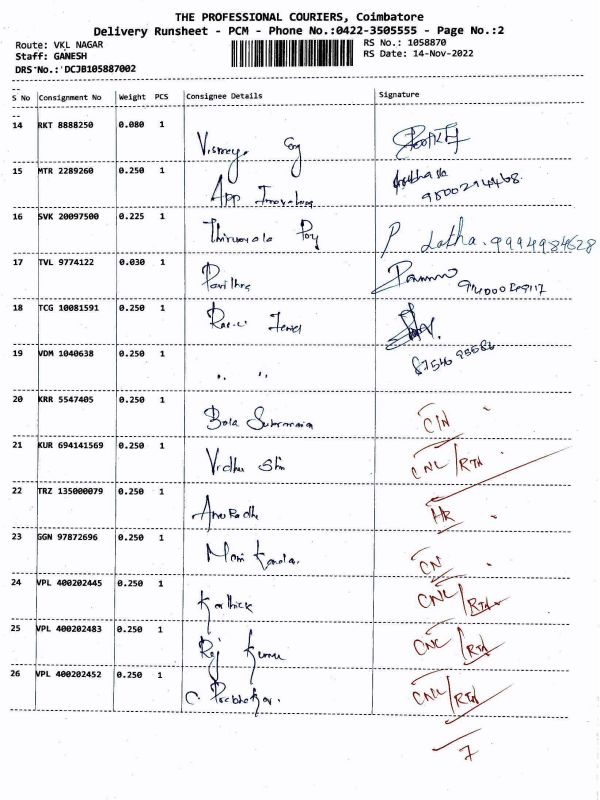 THE PROFESSIONAL COURIERS, Coimbatore
Delivery Runsheet - PCM - Phone No.:0422-3505555 - Page No.:2
Route: VKL NAGAR RS No.: 1058870
Staff: GANESH RS Date: 14-Nov-2022
DRS No.: DCJB105887002
S No Consignment No Weight PCS Consignee Details Signature
14 RKT 8888250 0.080 1
15 MTR 2289260 0.250 1 App
16 SVK 20097500 0.225 1 P Latha. 9994984628
17 TVL 9774122 0.030 1 Pavithra
18 TCG 10081591 0.250 1
19 VDM 1040638 0.250 1 " "
20 KRR 5547405 0.250 1 Bala
21 KUR 694141569 0.250 1 CNL/RTN
22 TRZ 135000079 0.250 1 Anuradha HR
23 GGN 97872696 0.250 1 Mani CN
24 VPL 400202445 0.250 1 Karthick CNL/RTN
25 VPL 400202483 0.250 1 Raj Kumar CNL/RTN
26 VPL 400202452 0.250 1 C. Prabhakar. CNL/RTN
7